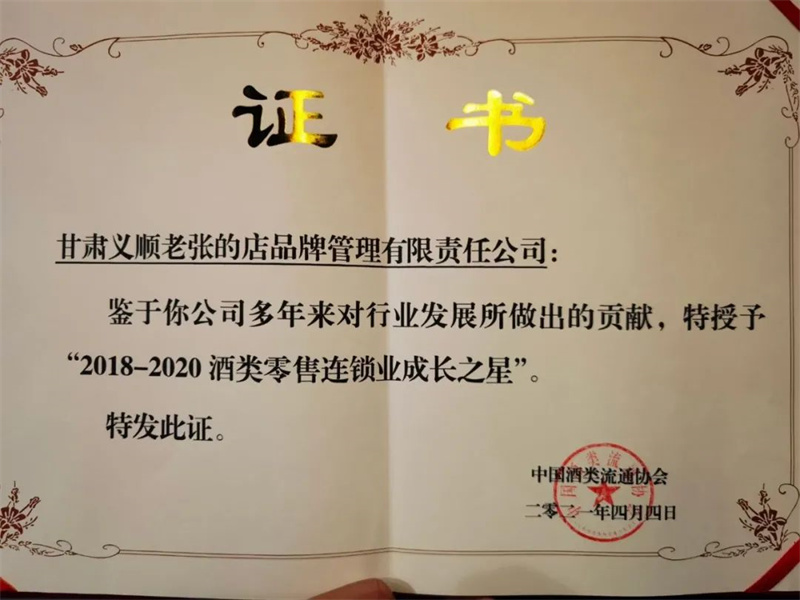 证 书
甘肃义顺老张的店品牌管理有限责任公司：
鉴于你公司多年来对行业发展所做出的贡献，特授予
“2018-2020 酒类零售连锁业成长之星”。
特发此证。
中国酒类流通协会
二零二一年四月四日